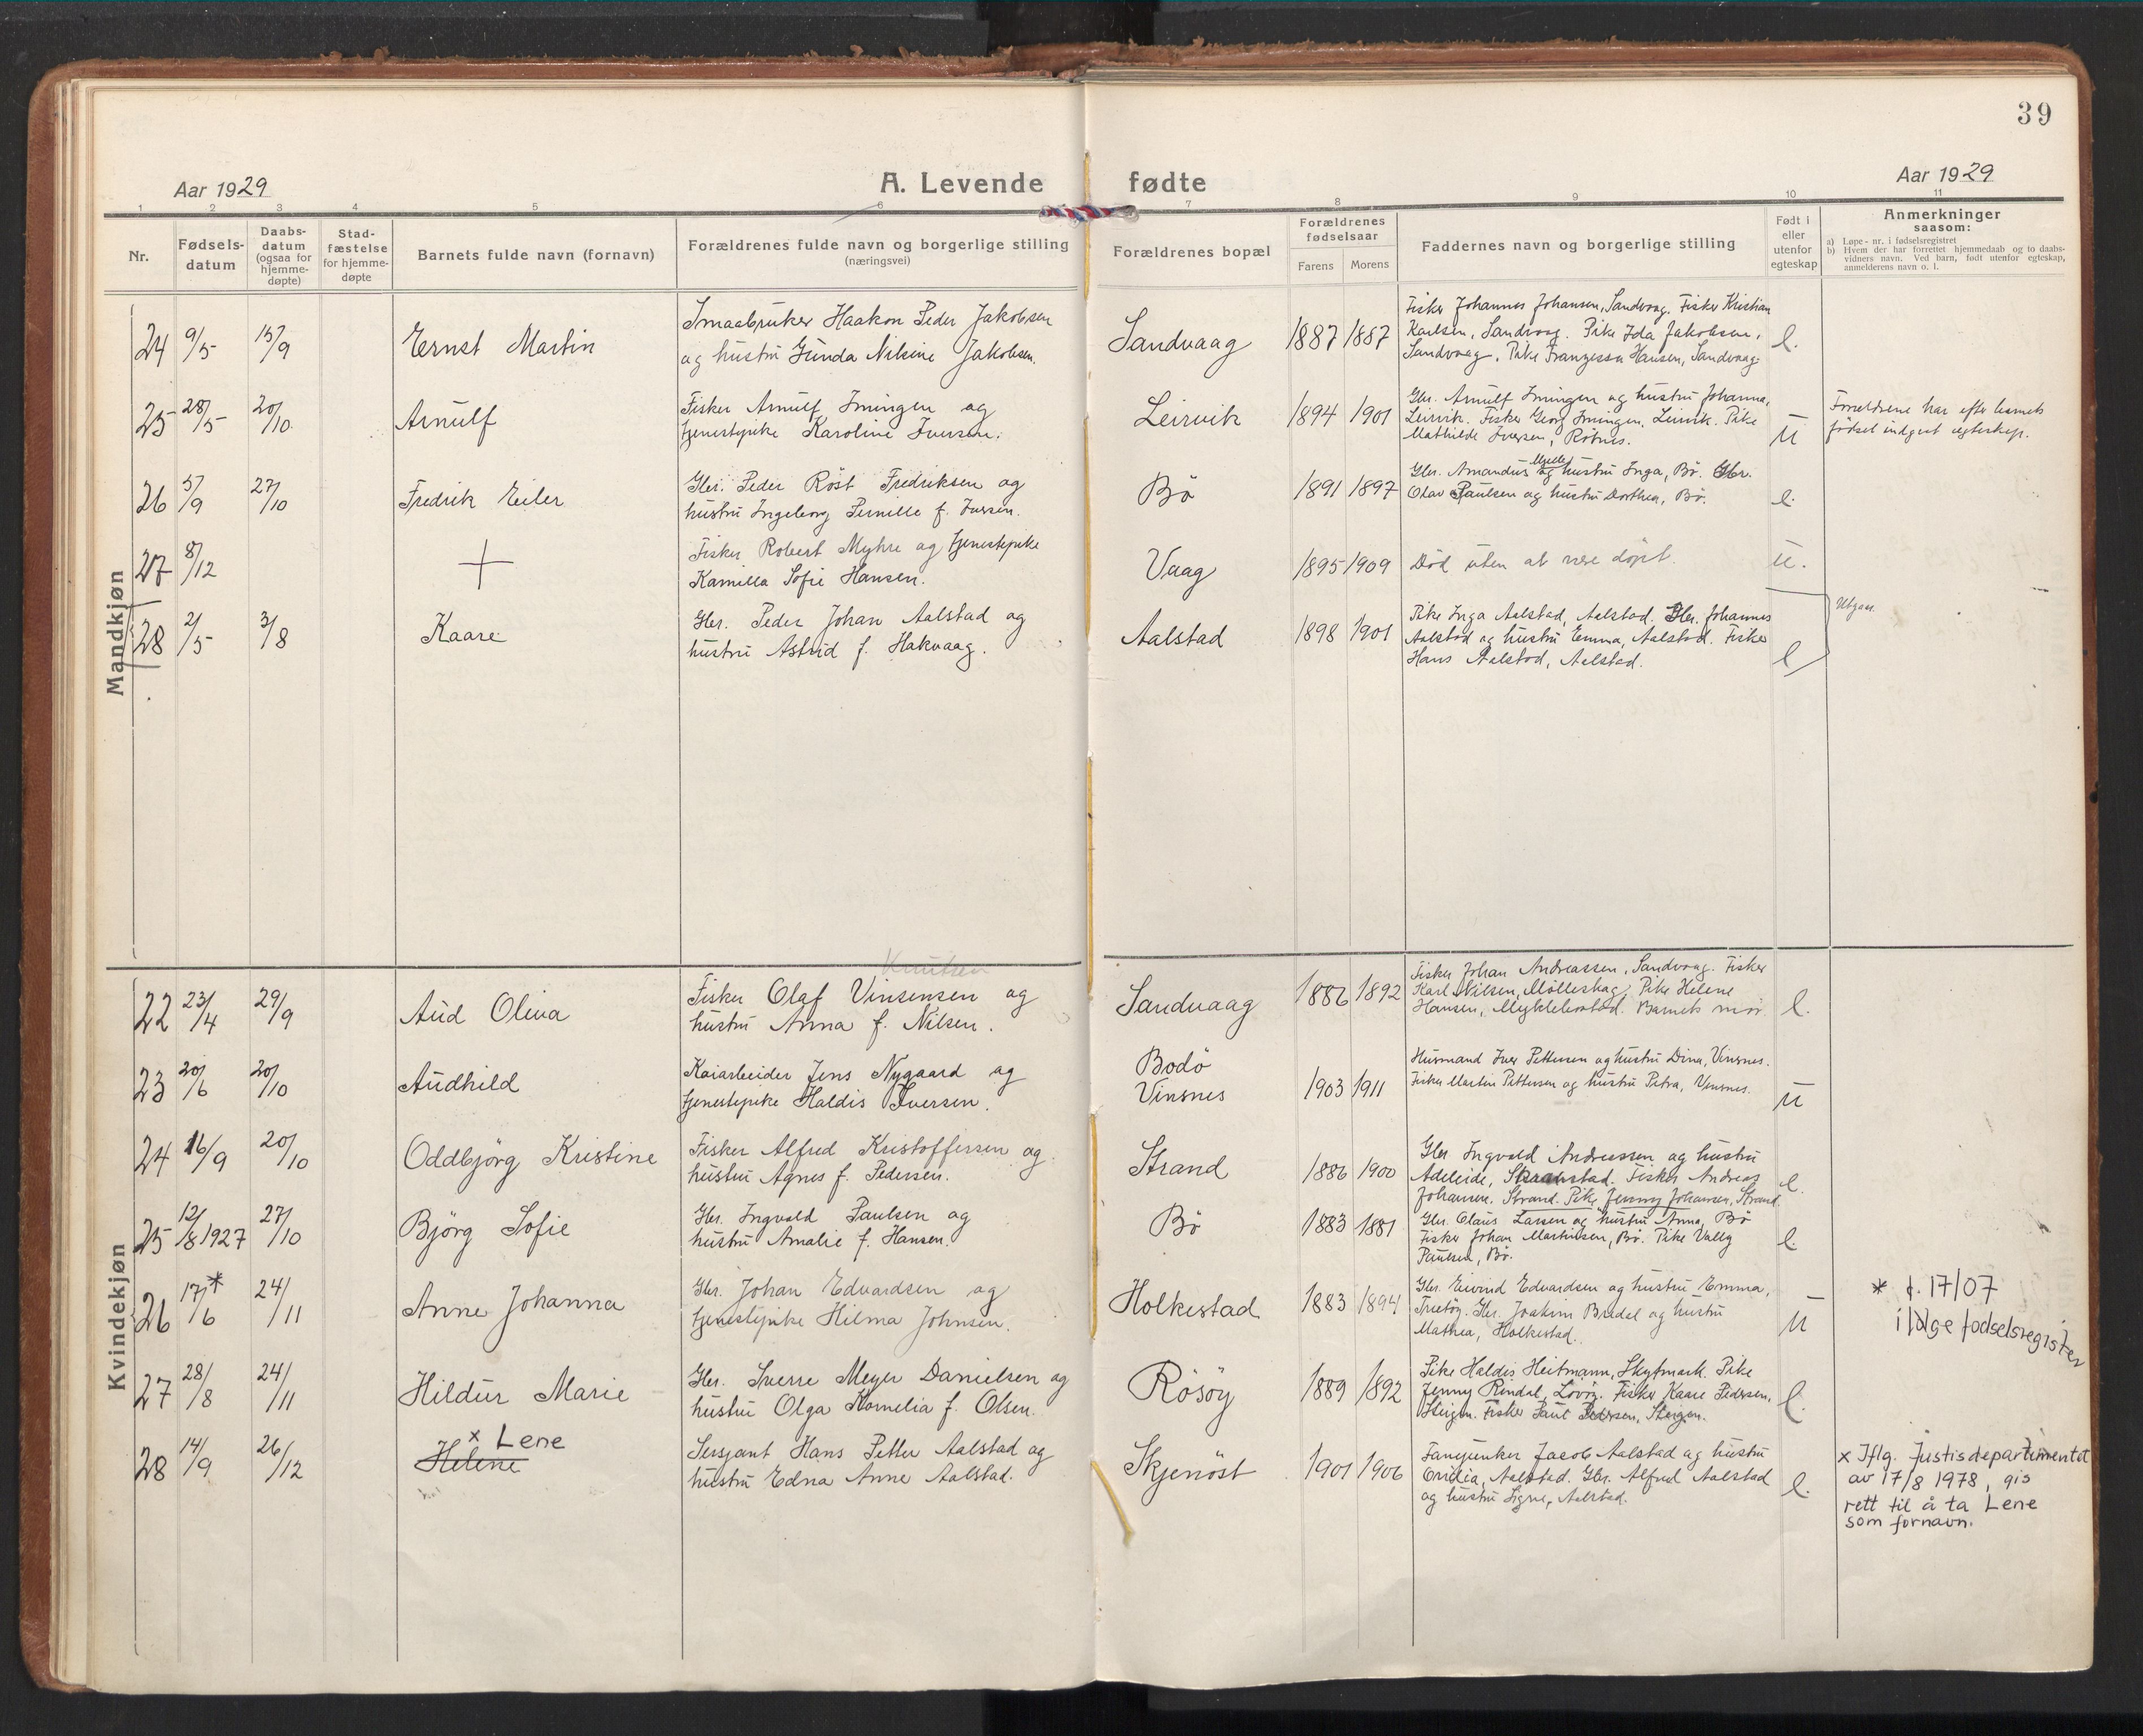 39
Aar 1929 A. Levende fødte Aar 1929
1 2 3 4 5 6 7 8 9 10 11
Nr. Fødselsdatum Daabsdatum (ogsaa for hjemmedøpte) Stadfæstelse for hjemmedøpte Barnets fulde navn (fornavn) Forældrenes fulde navn og borgerlige stilling (næringsvei) Forældrenes bopæl Forældrenes fødselsaar Farens Morens Faddernes navn og borgerlige stilling Født i eller utenfor egteskap Anmerkninger saasom:
a) Løpe-nr. i fødselsregistret
b) Hvem der har forrettet hjemmedaab og to daabsvidners navn. Ved barn, født utenfor egteskap, anmelderens navn o. l.
Mandkjøn
24 9/5 15/9 Ernst Martin
Smaabruker Haakon Peder Jakobsen
og hustru Gunda Nilsine Jakobsen.
Sandvaag 1887 1887
Fisker Johannes Johansen, Sandvaag. Fisker Kristian
Karlsen, Sandvaag. Pike Ida Jakobsen,
Sandvaag. Pike Franzessa Hansen, Sandvaag.
l.
25 28/5 20/10 Arnulf
Fisker Arnulf Imingen og
tjenestepike Karoline Iversen.
Leirvik 1894 1901
Gbr. Arnulf Imingen og hustru Johanna,
Leirvik. Fisker Georg Imingen, Leirvik. Pike
Mathilde Iversen, Rötnes.
u
Foreldrene har efter barnets
födsel indgaat egteskap.
26 5/9 27/10 Fredrik Eiler
Gbr. Peder Röst Fredriksen og
hustru Ingeborg Pernille f. Iversen.
Bö 1891 1897
Gbr. Amandus Mjelle og hustru Inga, Bö. Gbr.
Olav Paulsen og hustru Dorthea, Bö.
l.
27 8/12 +
Fisker Robert Myhre og tjenestepike
Kamilla Sofie Hansen.
Vaag 1895 1909
Död uten at være döpt.
u.
28 2/5 3/8 Kaare
Gbr. Peder Johan Aalstad og
hustru Astrid f. Hakvaag.
Aalstad 1898 1901
Pike Inga Aalstad, Aalstad. Gbr. Johannes
Aalstad og hustru Emma, Aalstad. Fisker
Hans Aalstad, Aalstad.
l
Utgaar.
Kvindekjøn
22 23/4 29/9 Aud Oliva
Knutsen
Fisker Olaf Vinsensen og
hustru Anna f. Nilsen.
Sandvaag 1886 1892
Fisker Johan Andreassen, Sandvaag. Fisker
Karl Nilsen, Mölleskag. Pike Helene
Hansen, Myklebostad. Barnets mor.
l.
23 20/6 20/10 Audhild
Kaiarbeider Jens Nygaard og
tjenestepike Haldis Iversen.
Bodö
Vinsnes 1903 1911
Husmand Iver Pettersen og hustru Dina, Vinsnes.
Fisker Martin Pettersen og hustru Petra, Vinsnes.
u
24 16/9 20/10 Oddbjörg Kristine
Fisker Alfred Kristoffersen og
hustru Agnes f. Pedersen.
Strand 1886 1900
Gbr Ingvald Andreassen og hustru
Adeleide, Skaanstad. Fisker Andreas
Johansen. Strand. Pike Jenny Johansen, Strand.
l.
25 12/8 1927 27/10 Björg Sofie
Gbr. Ingvald Paulsen og
hustru Amalie f. Hansen.
Bö 1883 1881
Gbr. Claus Larsen og hustru Anna, Bö
Fisker Johan Martinsen, Bö. Pike Vally
Paulsen, Bö.
l.
26 17/6* 24/11 Anne Johanna
Gbr. Johan Edvardsen og
tjenestepike Hilma Johnsen.
Holkestad 1883 1894
Gbr. Eivind Edvardsen og hustru Emma,
Gbr. Joakim Bredal og hustru
Mathea, Holkestad.
u
* f. 17/07
ifølge fødselsregister
27 28/8 24/11 Hildur Marie
Gbr. Sverre Meyer Danielsen og
hustru Olga Kornelia f. Olsen.
Rösöy 1889 1892
Pike Haldis Heitmann, Skytmark. Pike
Jenny Rindal, Lövöy. Fisker Kaare Pedersen,
Steigen. Fisker Paul Pedersen, Steigen.
l.
28 14/9 26/12 x Lene
Helene
Sersjant Hans Petter Aalstad og
hustru Edna Anne Aalstad.
Skjenöst 1901 1906
Fanejunker Jacob Aalstad og hustru
Ovidia, Aalstad. Gbr. Alfred Aalstad
og hustru Signe, Aalstad.
l.
x Iflg. Justisdepartementet
av 17/8 1978, gis
rett til å ta Lene
som fornavn.